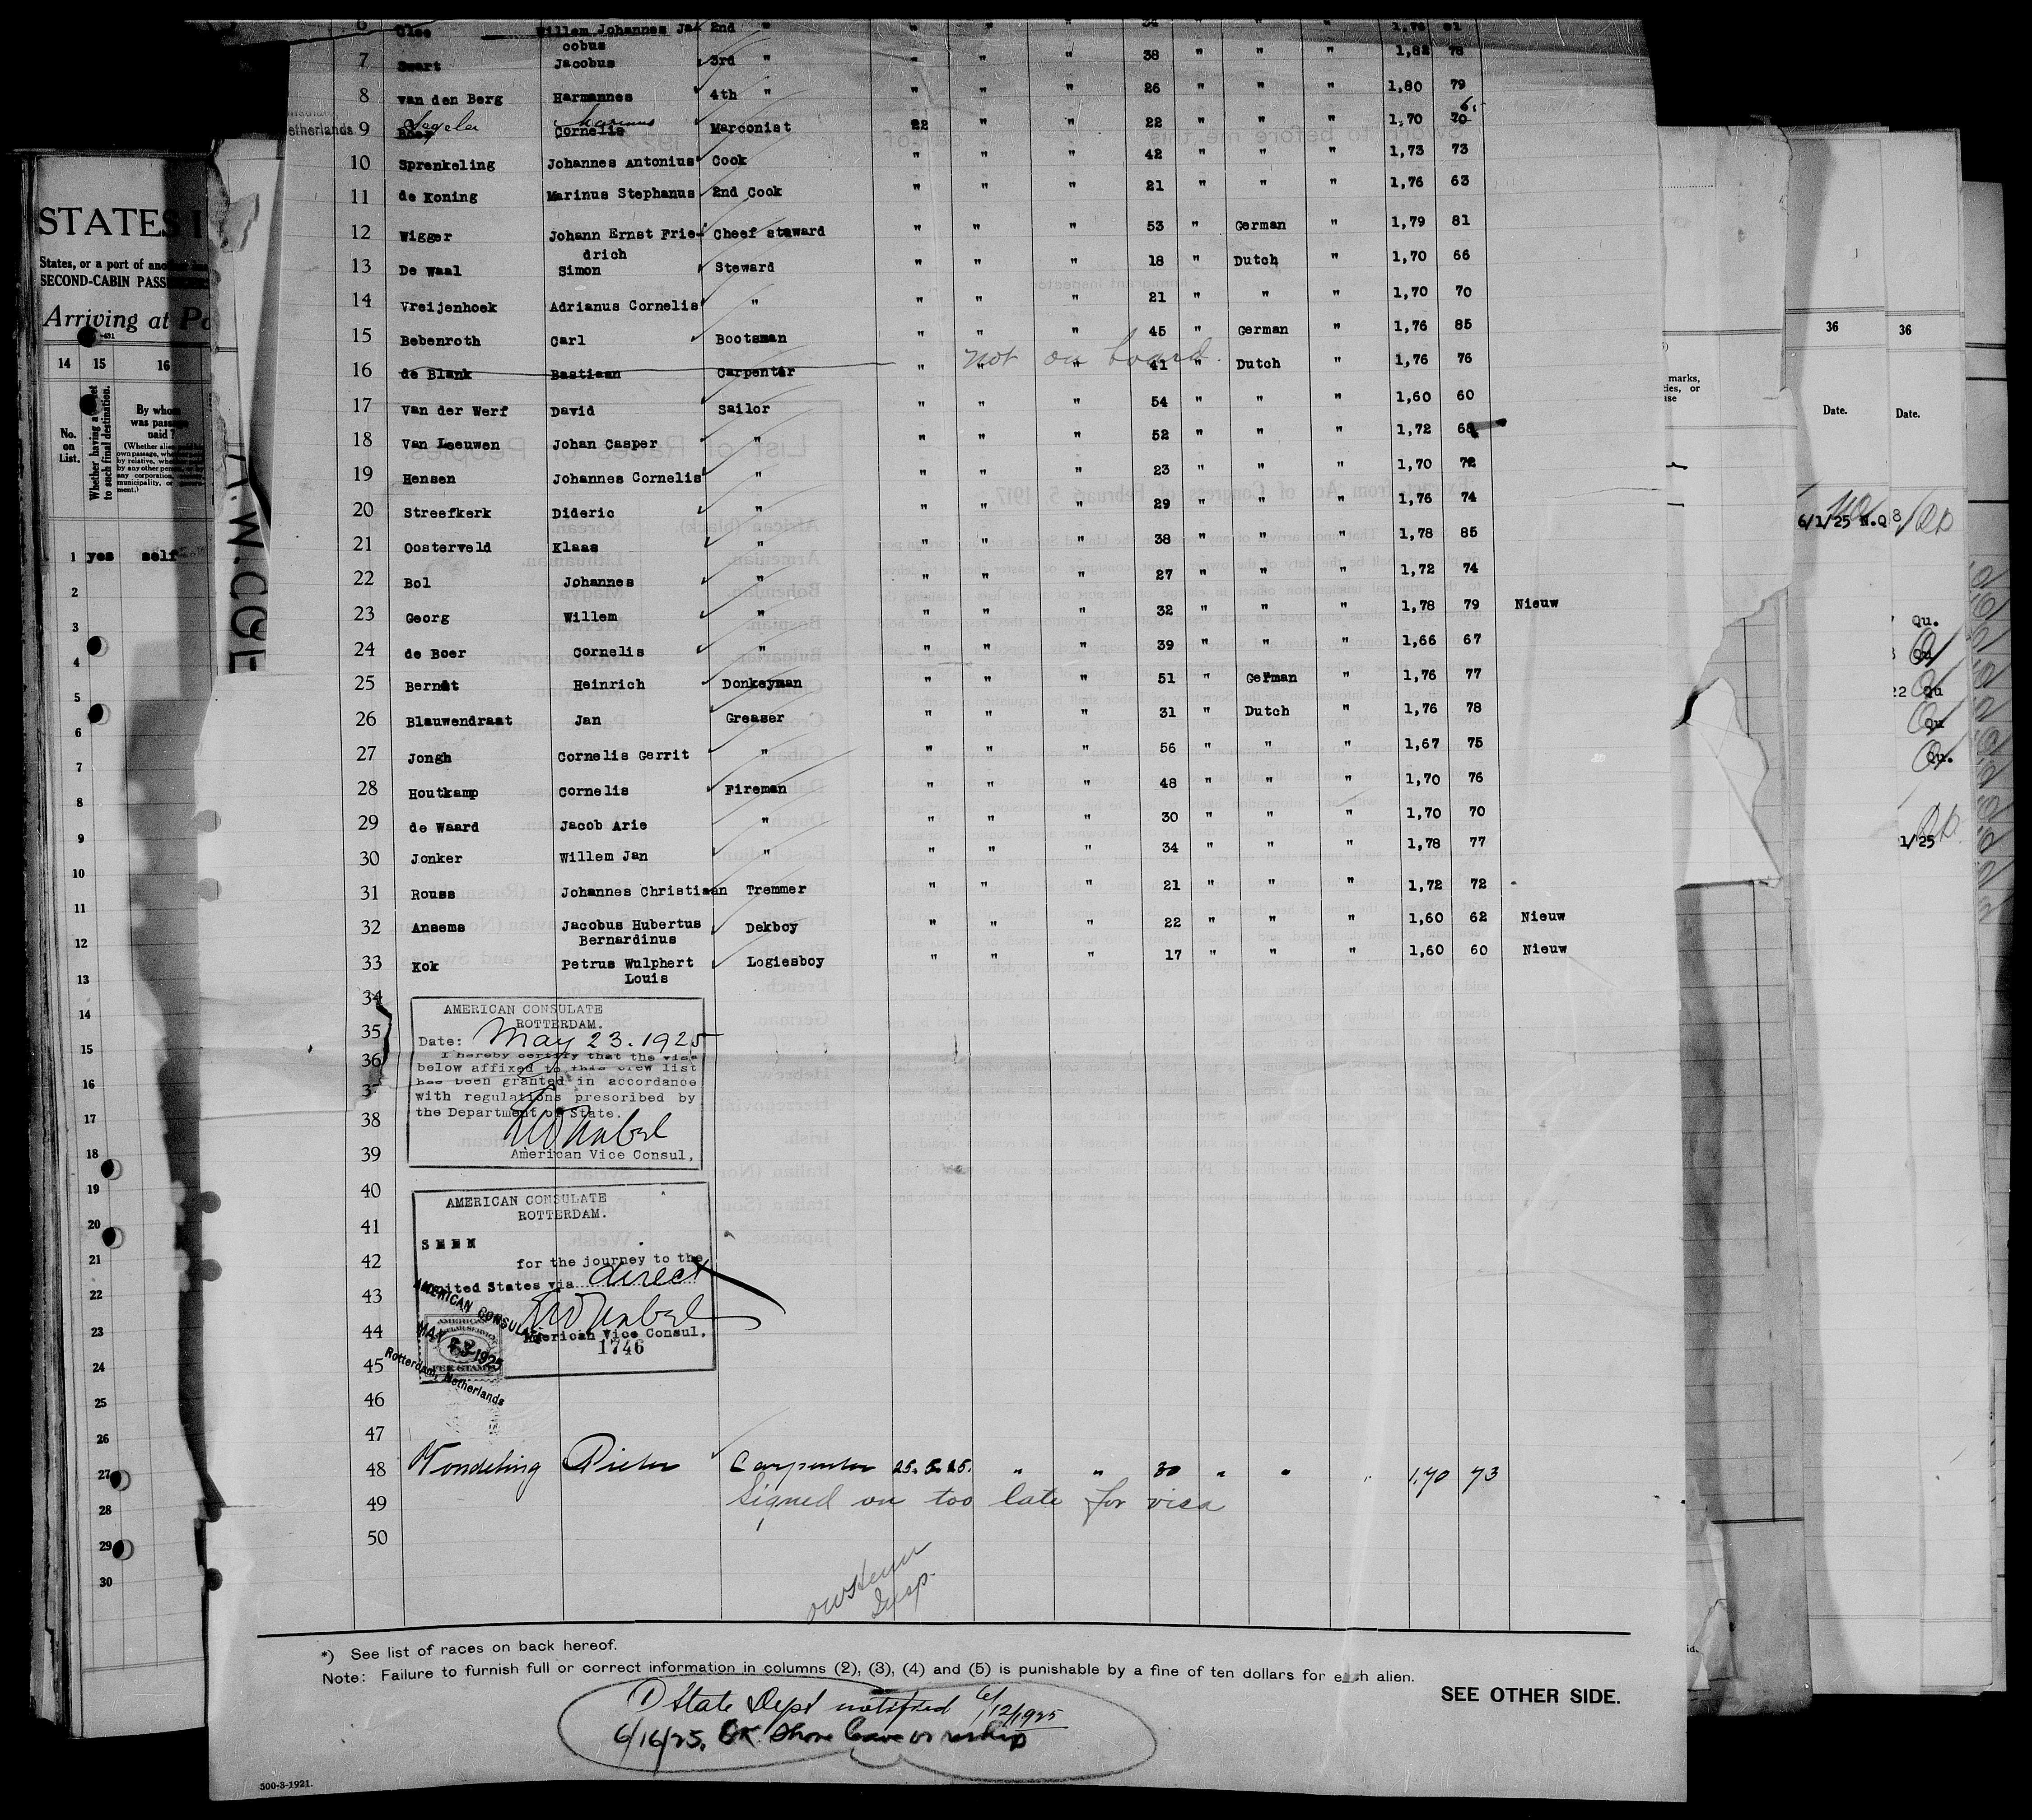 6 Willem Johannes Ja 2nd " " " " 1,76
cobus
7 Swart Jacobus 3rd " " " " 38 " " " 1,82 78
8 van den Berg Harmannes 4th " " " " 26 " " " 1,80 79
Netherlands 9 Boer Cornelis Marconist 22 " " 22 " " " 1,70 70
10 Sprenkeling Johannes Antonius Cook " " " 42 " " " 1,73 73
11 de Koning Marinus Stephanus 2nd Cook " " " 21 " " " 1,76 63
12 Wigger Johann Ernst Frie- Cheef staward " " " 53 " German " 1,79 81
drich
13 De Waal Simon Steward " " " 18 " Dutch " 1,70 66
14 Vreijenhoek Adrianus Cornelis " " " " 21 " " " 1,70 70
15 Bebenroth Carl Bootsman " " " 45 " German " 1,76 85
not on board.
16 de Blank Bastiaan Carpenter " " " 41 " Dutch " 1,76 76
17 Van der Werf David Sailor " " " 54 " " " 1,60 60
18 Van Leeuwen Johan Casper " " " " 52 " " " 1,72 68
19 Hensen Johannes Cornelis " " " " 23 " " " 1,70 72
20 Streefkerk Dideric " " " " 29 " " " 1,76 74
21 Oosterveld Klaas " " " " 38 " " " 1,78 85
22 Bol Johannes " " " " 27 " " " 1,72 74
23 Georg Willem " " " " 32 " " " 1,78 79 Nieuw
24 de Boer Cornelis " " " " 39 " " " 1,66 67
25 Berndt Heinrich Donkeyman " " " 51 " German " 1,76 77
26 Blauwendraat Jan Greaser " " " 31 " Dutch " 1,76 78
27 Jongh Cornelis Gerrit " " " " 56 " " " 1,67 75
28 Houtkamp Cornelis Fireman " " " 48 " " " 1,70 76
29 de Waard Jacob Arie " " " " 30 " " " 1,70 70
30 Jonker Willem Jan " " " " 34 " " " 1,78 77
31 Rouss Johannes Christiaan Tremmer " " " 21 " " " 1,72 72
32 Ansems Jacobus Hubertus Dekboy " " " 22 " " " 1,60 62 Nieuw
Bernardinus
33 Kok Petrus Wulphert Logiesboy " " " 17 " " " 1,60 60 Nieuw
Louis
34
35
36
37
38
39
40
41
42
43
44
45
46
47
AMERICAN CONSULATE
ROTTERDAM.
Date: May 23. 1925
I hereby certify that the visa
below affixed to this crew list
has been granted in accordance
with regulations prescribed by
the Department of State.
American Vice Consul.
AMERICAN CONSULATE
ROTTERDAM.
SEEN
for the journey to the
United States via direct
American Vice Consul.
1746
AMERICAN CONSULATE
MAY 23 1925
Rotterdam, Netherlands
48 Wondeling Pieter Carpenter 25.5.25. " " 30 " " " 1,70 73
49 Signed on too late for visa
50
Insp.
*) See list of races on back hereof.
Note: Failure to furnish full or correct information in columns (2), (3), (4) and (5) is punishable by a fine of ten dollars for each alien.
SEE OTHER SIDE.
1) State Dept notified 6/12/1925
6/16/25. OK Shore leave
500-3-1921.
STATES I
States, or a port of
SECOND-CABIN
Arriving at Po
14 15 16
No. on List.
Whether having a ticket to such final destination.
By whom was passage paid?
1 yes self
2
3
4
5
6
7
8
9
10
11
12
13
14
15
16
17
18
19
20
21
22
23
24
25
26
27
28
29
30
36 36
Date. Date.
6/1/25 N.Q
Qu.
Qu
22 Qu
Qu
Qu.
1/25